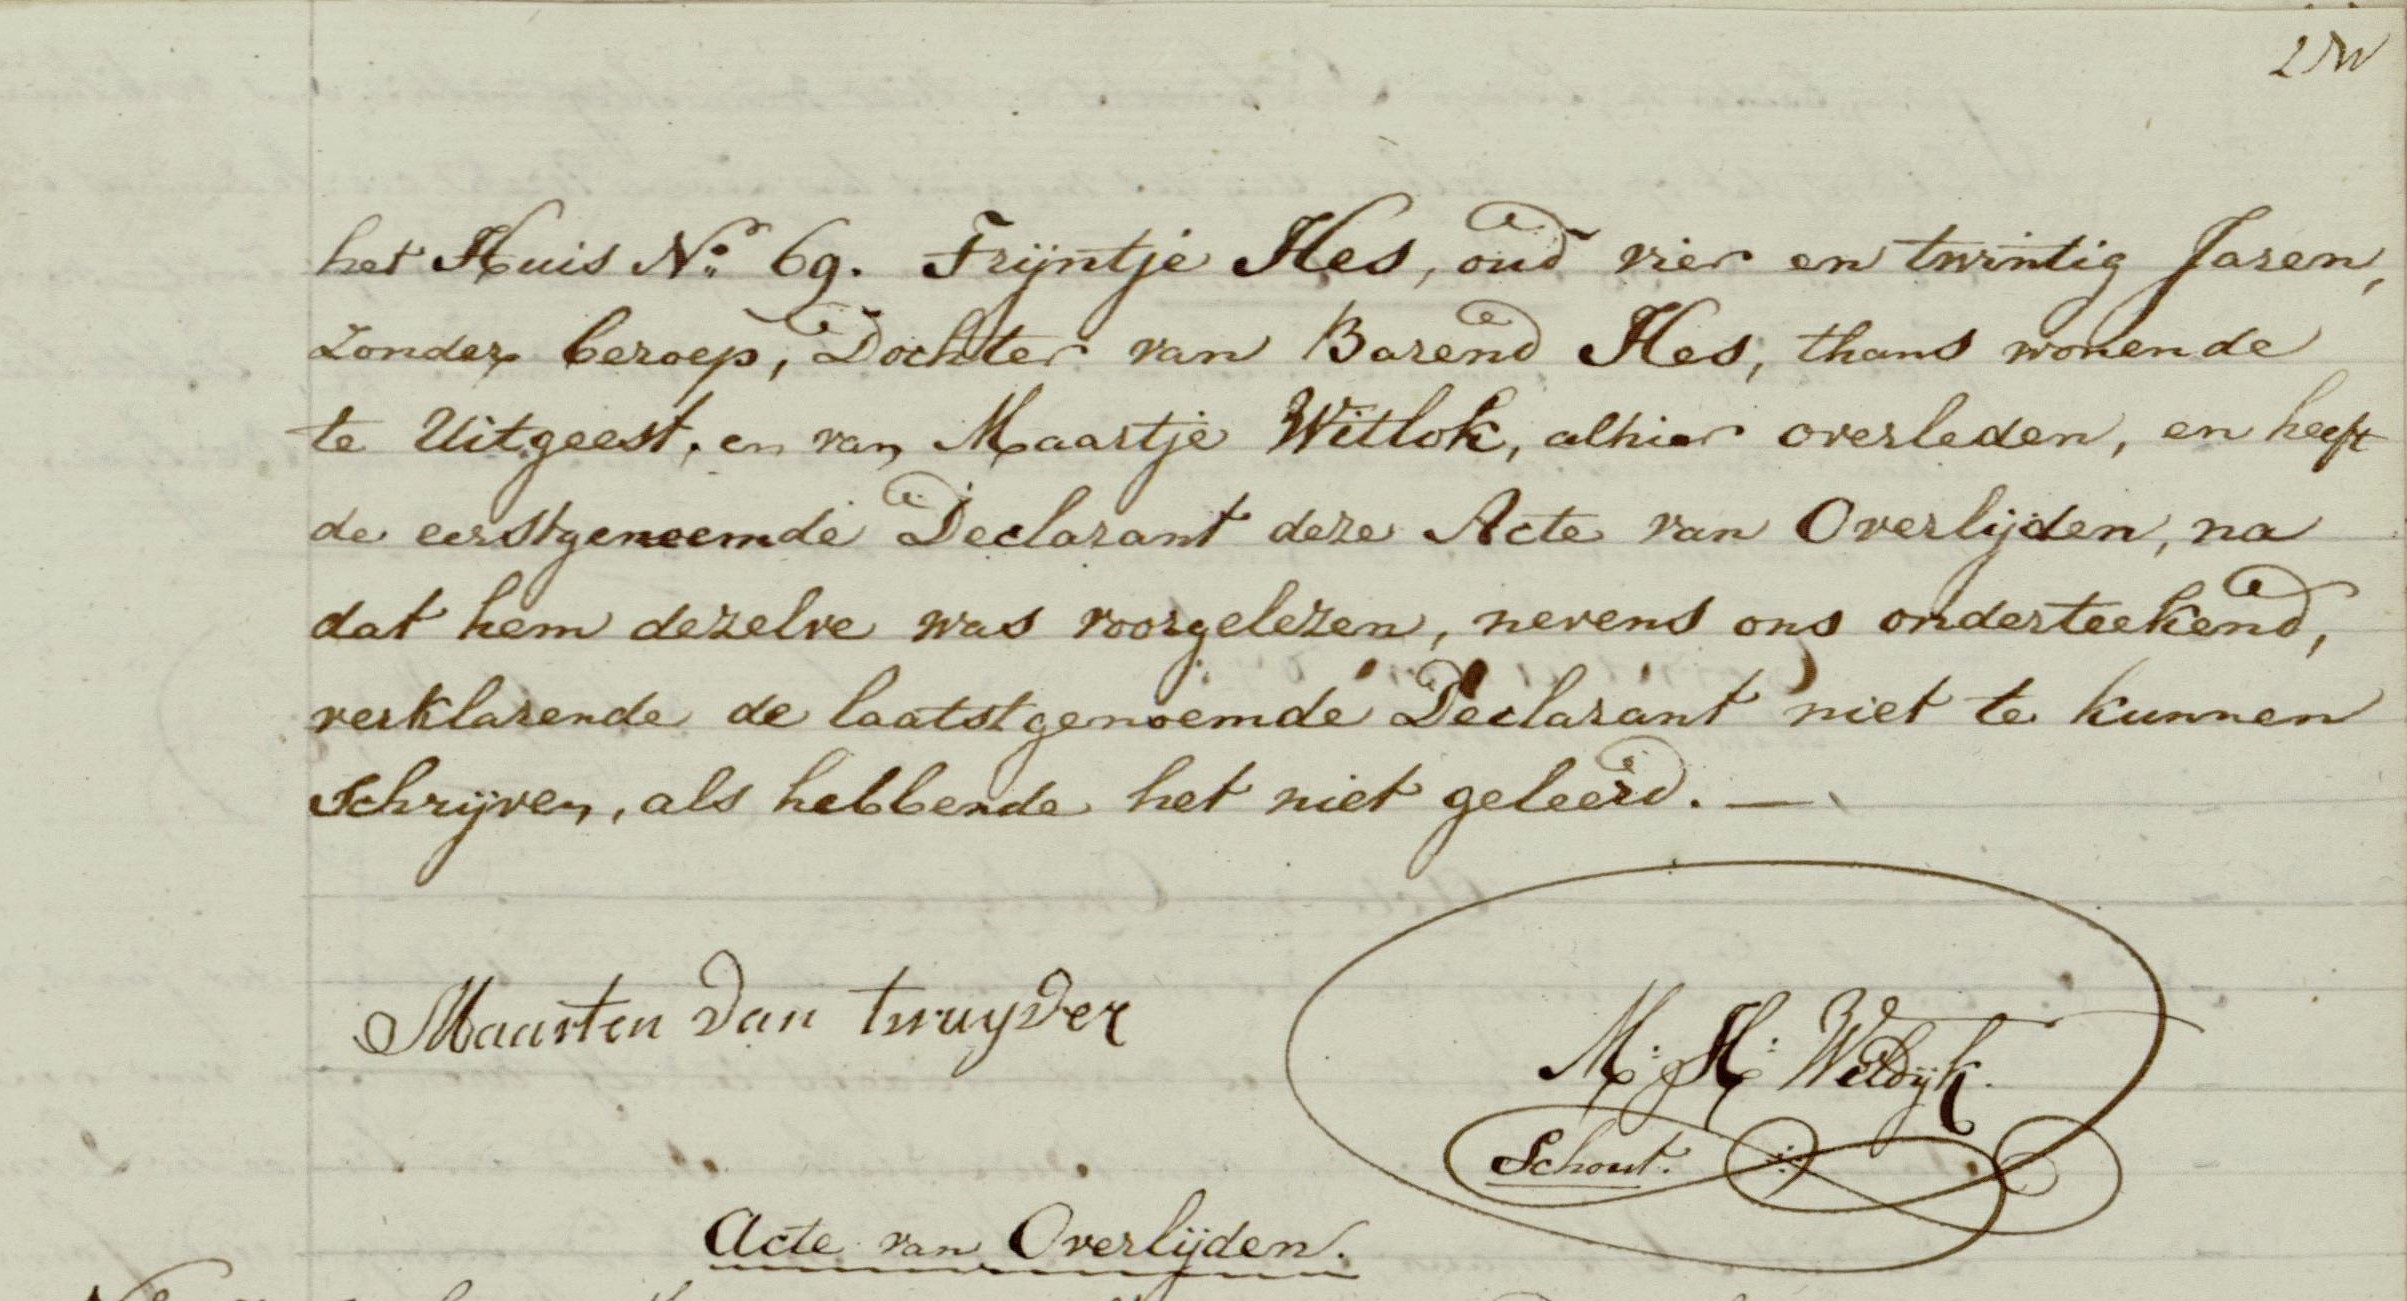 het Huis No. 69. Trijntje Hes, oud vier en twintig Jaren,
zonder beroep, Dochter van Barend Hes, thans wonende
te Uitgeest, en van Maartje Witlok, alhier overleden, en heeft
de eerstgenoemde Declarant deze Acte van Overlijden, na
dat hem dezelve was voorgelezen, nevens ons onderteekend,
verklarende de laatstgenoemde Declarant niet te kunnen
Schrijven, als hebbende het niet geleerd. —
Maarten van twuyver
M: H: Weldijk.
Schout.
Acte van Overlijden.